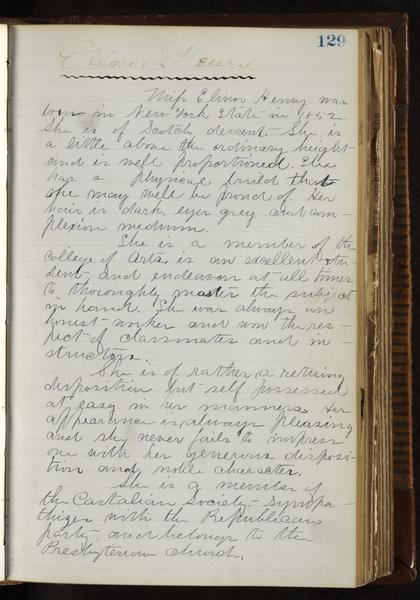 129
Elinor Henry
Miss Elinor Henry was
born in New York State in 1852.
She is of Scotch descent. She is
a little above the ordinary height
and is well proportioned. She
has a physical build that
she may well be proud of. Her
hair is dark eyes grey and com-
plexion medium.
She is a member of the
College of Arts, is an excellent stu-
dent and endeavors at all times
to thoroughly master the subject
in hand. She was always an
honest worker and won the res-
pect of classmates and in-
structors.
She is of rather a retiring
disposition but self possessed
at easy in her manners. Her
appearance is always pleasing
and she never fails to impress
one with her generous disposi-
tion and noble character.
She is a member of
the Castalian Society - sympa-
thizes with the Republican
party, and belongs to the
Presbyterian Church.